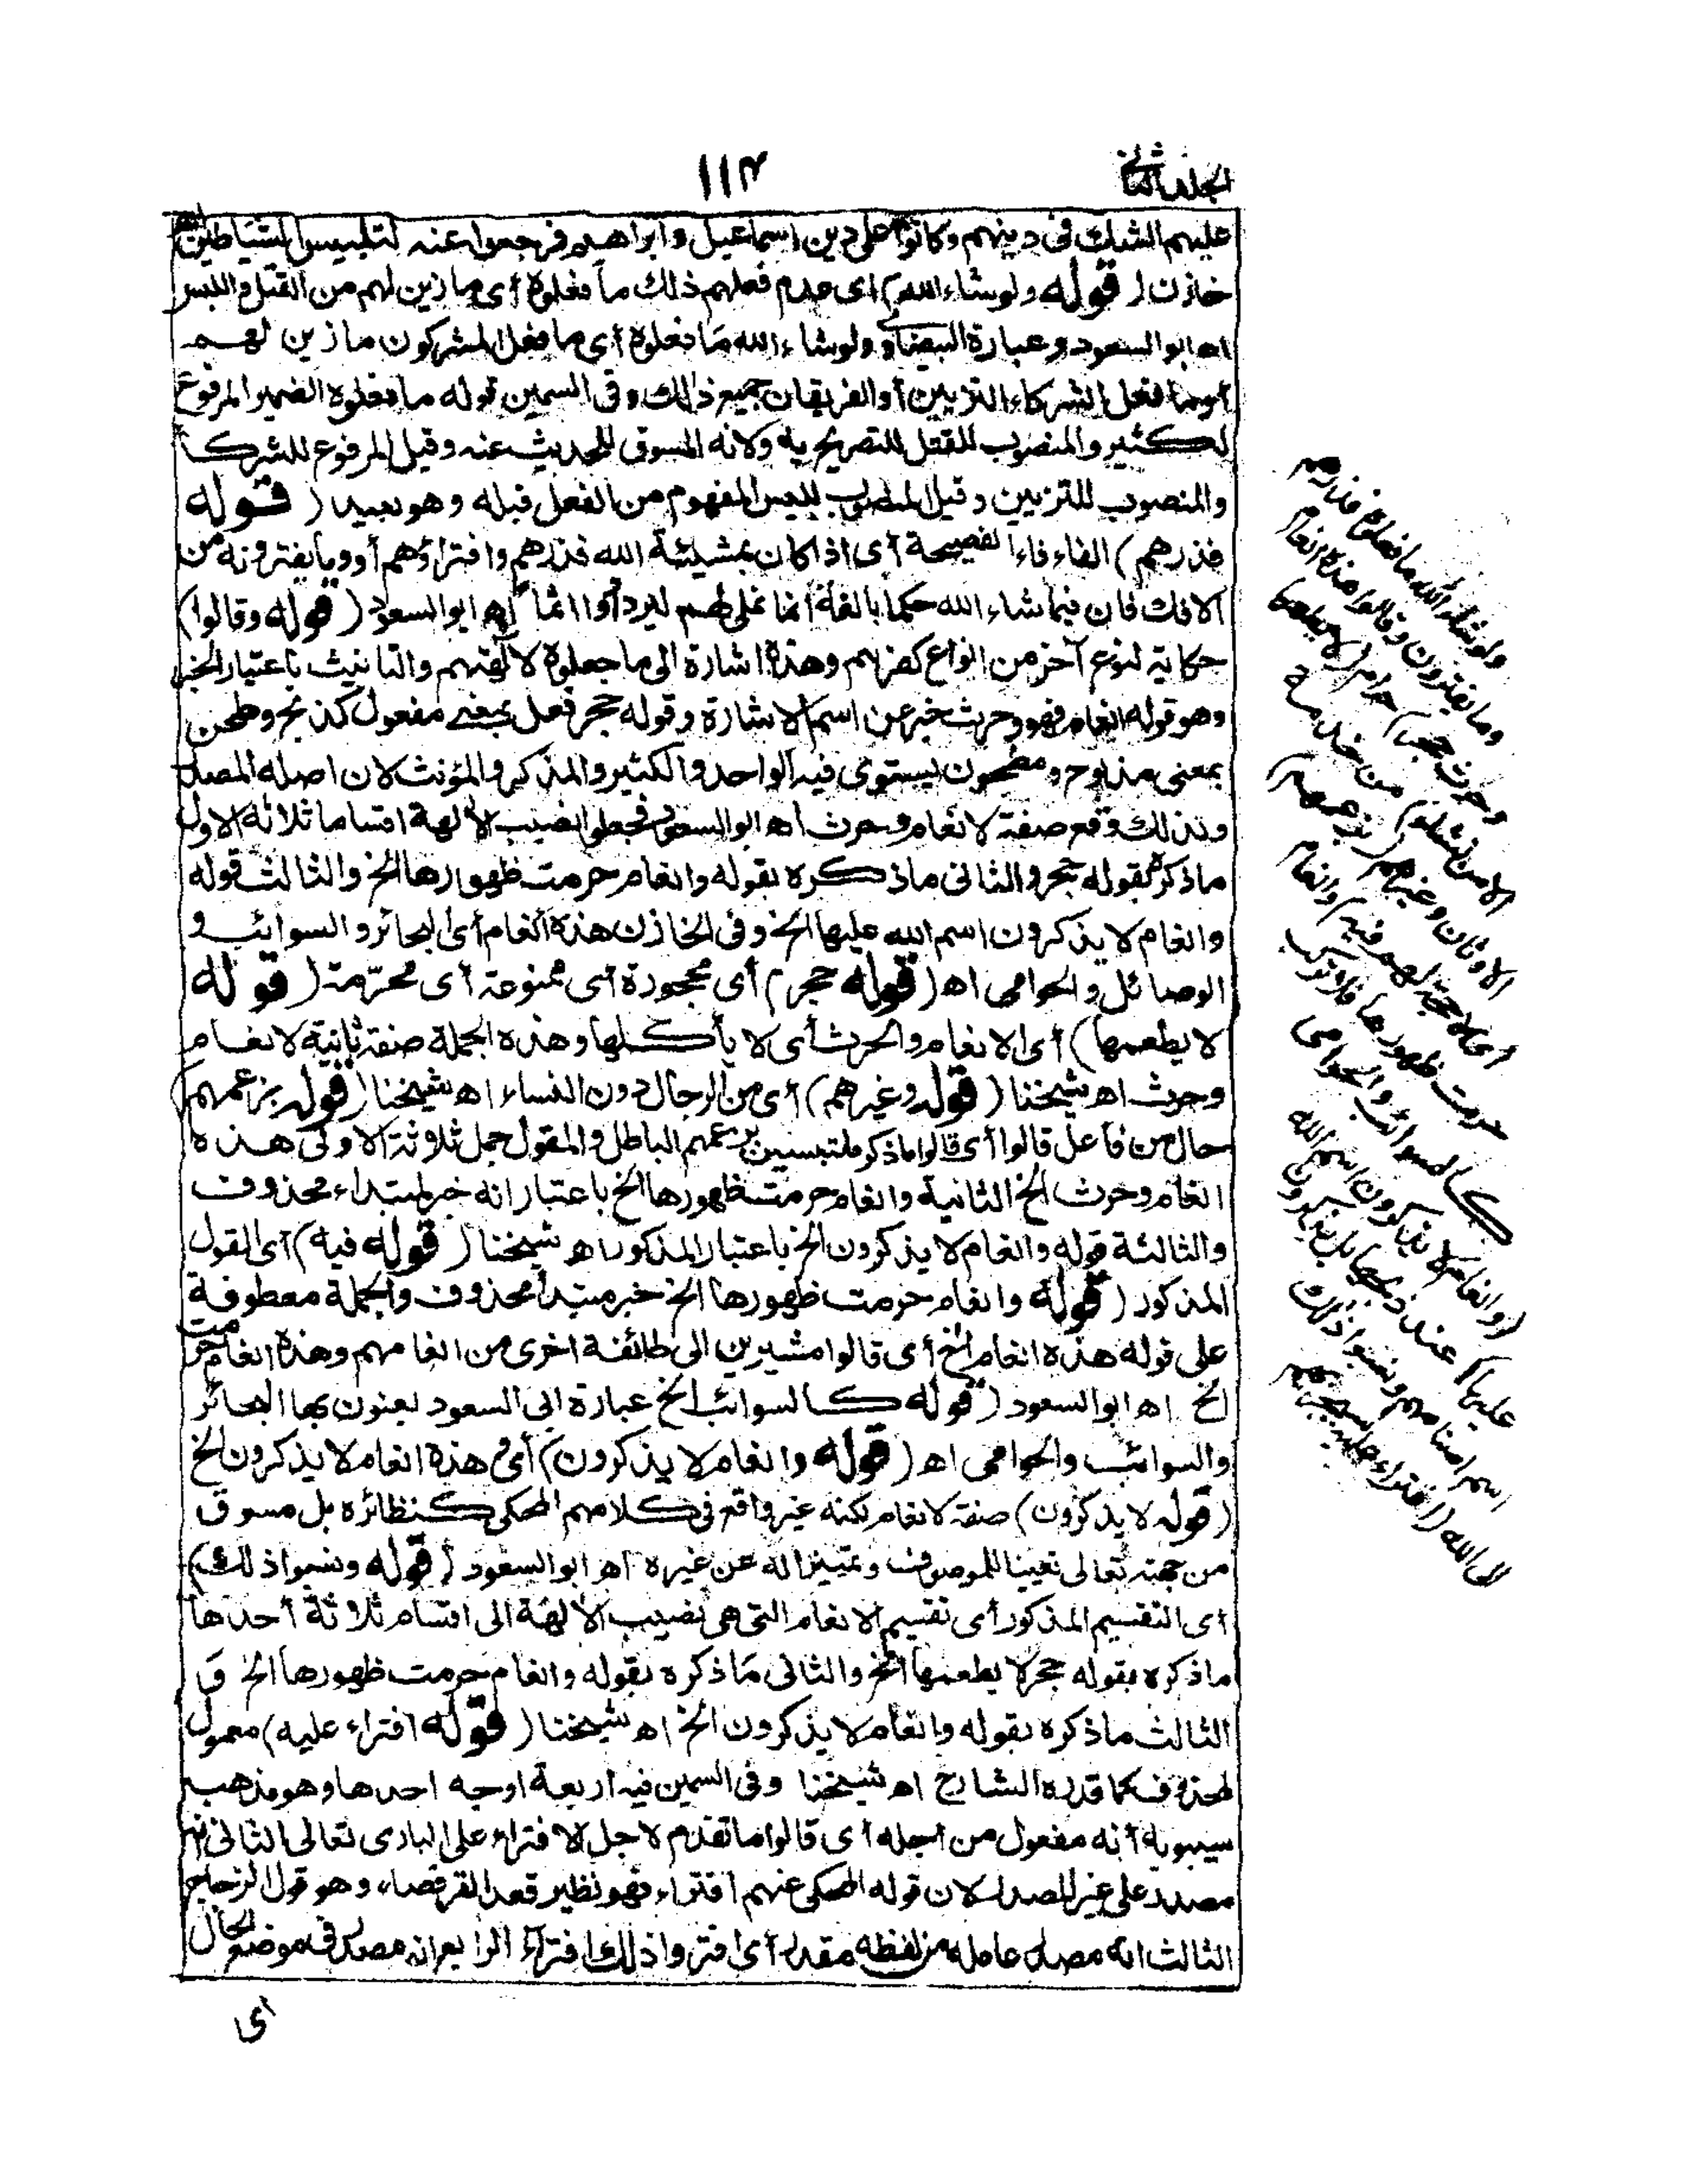 الجلد الثانى
١١٣
عليهم الشك فى دينهم وكانوا على دين اسماعيل وابراهيم فرجعوا عنه لتلبيس الشياطين اه
خازن (قوله ولو شاء الله) اى عدم فعلهم ذلك ما فعلوه أى ما زين لهم من القتل واللبس
اه ابو السعود وعبارة البيضاوى ولو شاء الله ما فعلوه أى ما فعل المشركون ما زين لهم
أو ما فعل الشركاء التزيين أو الفريقان جميع ذلك وفى السمين قوله ما فعلوه الضمير المرفوع
لكثير والمنصوب للقتل للتصريح به ولانه المسوق للحديث عنه وقيل المرفوع للشركاء
والمنصوب للتزيين وقيل المنصوب للبس المفهوم من الفعل قبله وهو بعيد (قوله
فذرهم) الفاء فاء الفصيحة أى اذا كان بمشيئة الله فذرهم وافتراؤهم أو وما يفترونه من
الافك فان فيما شاء الله حكما بالغة انما نملى لهم ليزدادوا اثما اه ابو السعود (قوله وقالوا)
حكاية لنوع آخر من انواع كفرهم وهذه اشارة الى ما جعلوه لآلهتهم والتانيث باعتبار الخبر
وهو قوله انعام فهو وحرث خبر عن اسم الاشارة وقوله حجر فعل بمعنى مفعول كذبح وطحن
بمعنى مذبوح ومطحون يستوى فيه الواحد والكثير والمذكر والمؤنث لان اصله المصدر
ولذلك وقع صفة لانعام وحرث اه ابو السعود فجعلوا نصيب الآلهة اقساما ثلاثة الاول
ما ذكره بقوله حجر والثانى ما ذكره بقوله وانعام حرمت ظهورها الخ والثالث قوله
وانعام لا يذكرون اسم الله عليها الخ وفى الخازن هذه انعام أى البحائر والسوائب و
الوصائل والحوامى اه (قوله حجر) أى محجورة أى ممنوعة أى محرّمة (قوله
لا يطعمها) أى الانعام والحرث أى لا يأكلها وهذه الجملة صفة ثانية لانعام
وحرث اه شيخنا (قوله وغيرهم) أى من الرجال دون النساء اه شيخنا (قوله بزعمهم)
حال من فاعل قالوا أى قالوا ما ذكر ملتبسين بزعمهم الباطل والمقول جمل ثلاثة الاولى هذه
انعام وحرث الخ الثانية وانعام حرمت ظهورها الخ باعتبار انه خبر لمبتداء محذوف
والثالثة قوله وانعام لا يذكرون الخ باعتبار المذكور اه شيخنا (قوله فيه) أى القول
المذكور (قوله وانعام حرمت ظهورها الخ خبر مبتدأ محذوف والجملة معطوفة
على قوله هذه انعام الخ أى قالوا مشيرين الى طائفة اخرى من انعامهم وهذه انعام حرمت
الخ اه ابو السعود (قوله كالسوائب الخ عبارة ابى السعود يعنون بها البحائر
والسوائب والحوامى اه (قوله وانعام لا يذكرون) أى هذه انعام لا يذكرون الخ
(قوله لا يذكرون) صفة لانعام لكنه غير واقع فى كلامهم المحكى كنظائره بل مسوق
من جهته تعالى تعيينا للموصوف وتمييزا له عن غيره اه ابو السعود (قوله ونسبوا ذلك)
أى التقسيم المذكور أى تقسيم الانعام التى هى نصيب الآلهة الى اقسام ثلاثة أحدها
ما ذكره بقوله حجر لا يطعمها الخ والثانى ما ذكره بقوله وانعام حرمت ظهورها الخ و
الثالث ما ذكره بقوله وانعام لا يذكرون الخ اه شيخنا (قوله افتراء عليه) معمول
لمحذوف كما قدره الشارح اه شيخنا وفى السمين فيه اربعة اوجه احدها وهو مذهب
سيبويه أنه مفعول من أجله أى قالوا ما تقدم لاجل الافتراء على البارى تعالى الثانى انه
مصدر على غير المصدر لان قوله المحكى عنهم افتراء فهو نظير قعد القرفصاء وهو قول الزجاج
الثالث انه مصدر عامله من لفظه مقدر أى افتروا ذلك افتراء الرابع انه مصدر فى موضع الحال
أى
ولو شاء الله ما فعلوه فذرهم
وما يفترون وقالوا هذه انعام
وحرث حجر) حرام (لا يطعمها
الا من نشاء) من خدمة
الاوثان وغيرهم (بزعمهم)
أى لا حجة لهم فيه (وانعام
حرمت ظهورها) فلا تركب
كالسوائب والحوامى
(وانعام لا يذكرون اسم الله
عليها) عند ذبحها بل يذكرون
اسم اصنامهم ونسبوا ذلك
الى الله (افتراء عليه سيجزيهم